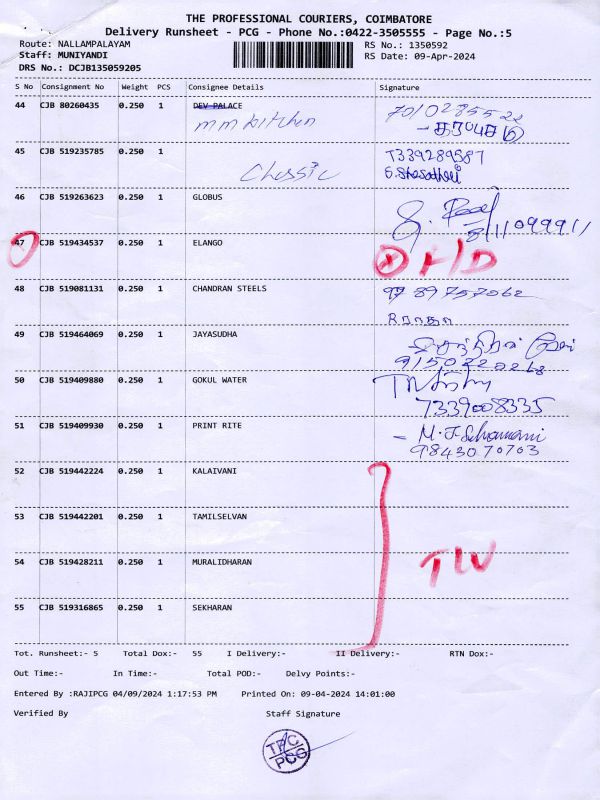 THE PROFESSIONAL COURIERS, COIMBATORE
Delivery Runsheet - PCG - Phone No.:0422-3505555 - Page No.:5
Route: NALLAMPALAYAM RS No.: 1350592
Staff: MUNIYANDI RS Date: 09-Apr-2024
DRS No.: DCJB135059205
S No Consignment No Weight PCS Consignee Details Signature
44 CJB 80260435 0.250 1 DEV PALACE 7010285522
mm kitchen
45 CJB 519235785 0.250 1 7339289587
Classic
46 CJB 519263623 0.250 1 GLOBUS
47 CJB 519434537 0.250 1 ELANGO
48 CJB 519081131 0.250 1 CHANDRAN STEELS 9789757062
49 CJB 519464069 0.250 1 JAYASUDHA
9150220268
50 CJB 519409880 0.250 1 GOKUL WATER
7339008335
51 CJB 519409930 0.250 1 PRINT RITE
9843070703
52 CJB 519442224 0.250 1 KALAIVANI
53 CJB 519442201 0.250 1 TAMILSELVAN
54 CJB 519428211 0.250 1 MURALIDHARAN
55 CJB 519316865 0.250 1 SEKHARAN
Tot. Runsheet:- 5 Total Dox:- 55 I Delivery:- II Delivery:- RTN Dox:-
Out Time:- In Time:- Total POD:- Delvy Points:-
Entered By :RAJIPCG 04/09/2024 1:17:53 PM Printed On: 09-04-2024 14:01:00
Verified By Staff Signature
TPC
PCG